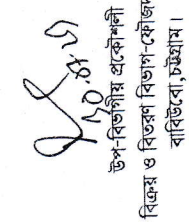 উপ-বিভাগীয় প্রকৌশলী
বিক্রয় ও বিতরণ বিভাগ-ফৌজদ
বাবিউবো, চট্টগ্রাম।